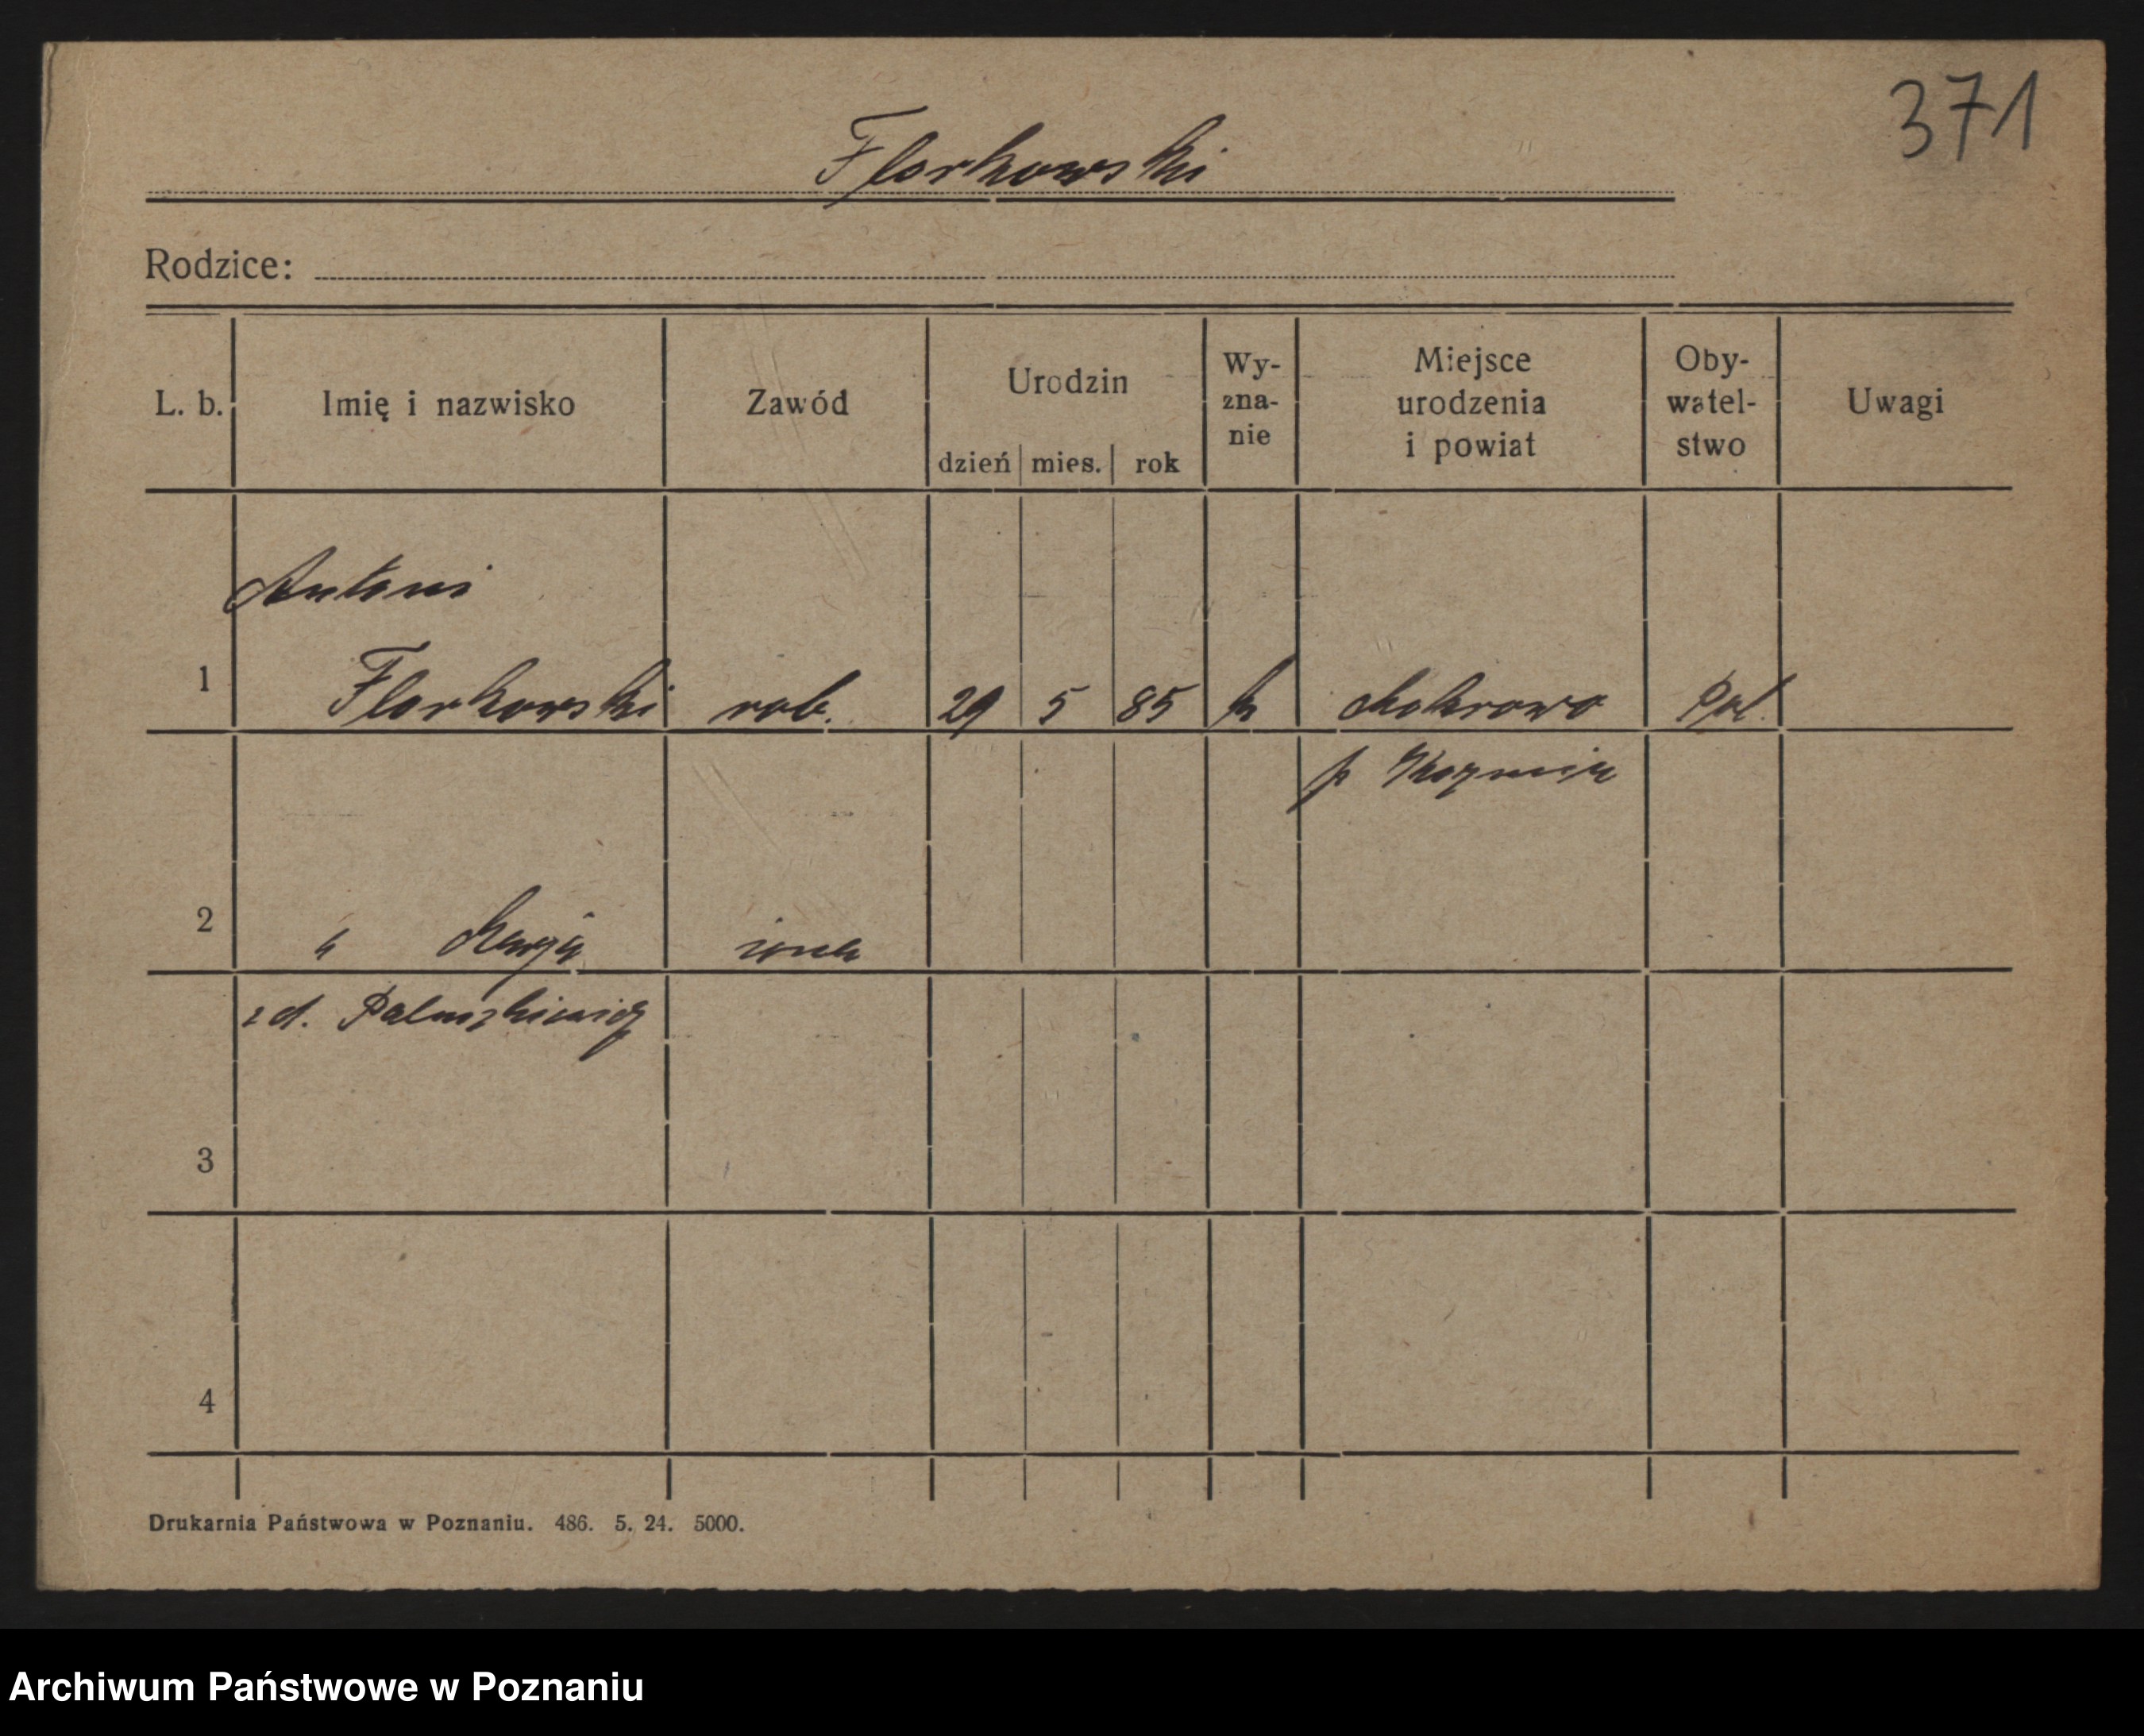 371
Florkowski
Rodzice:
L. b. Imię i nazwisko Zawód Urodzin dzień mies. rok Wy-zna-nie Miejsce urodzenia i powiat Oby-watel-stwo Uwagi
Antoni
1 Florkowski rob. 29 5 85 k Mokronowo Pol.
p Kozmin
2 " Marja żona
z d. Paluszkiewicz
3
4
Drukarnia Państwowa w Poznaniu. 486. 5. 24. 5000.
Archiwum Państwowe w Poznaniu